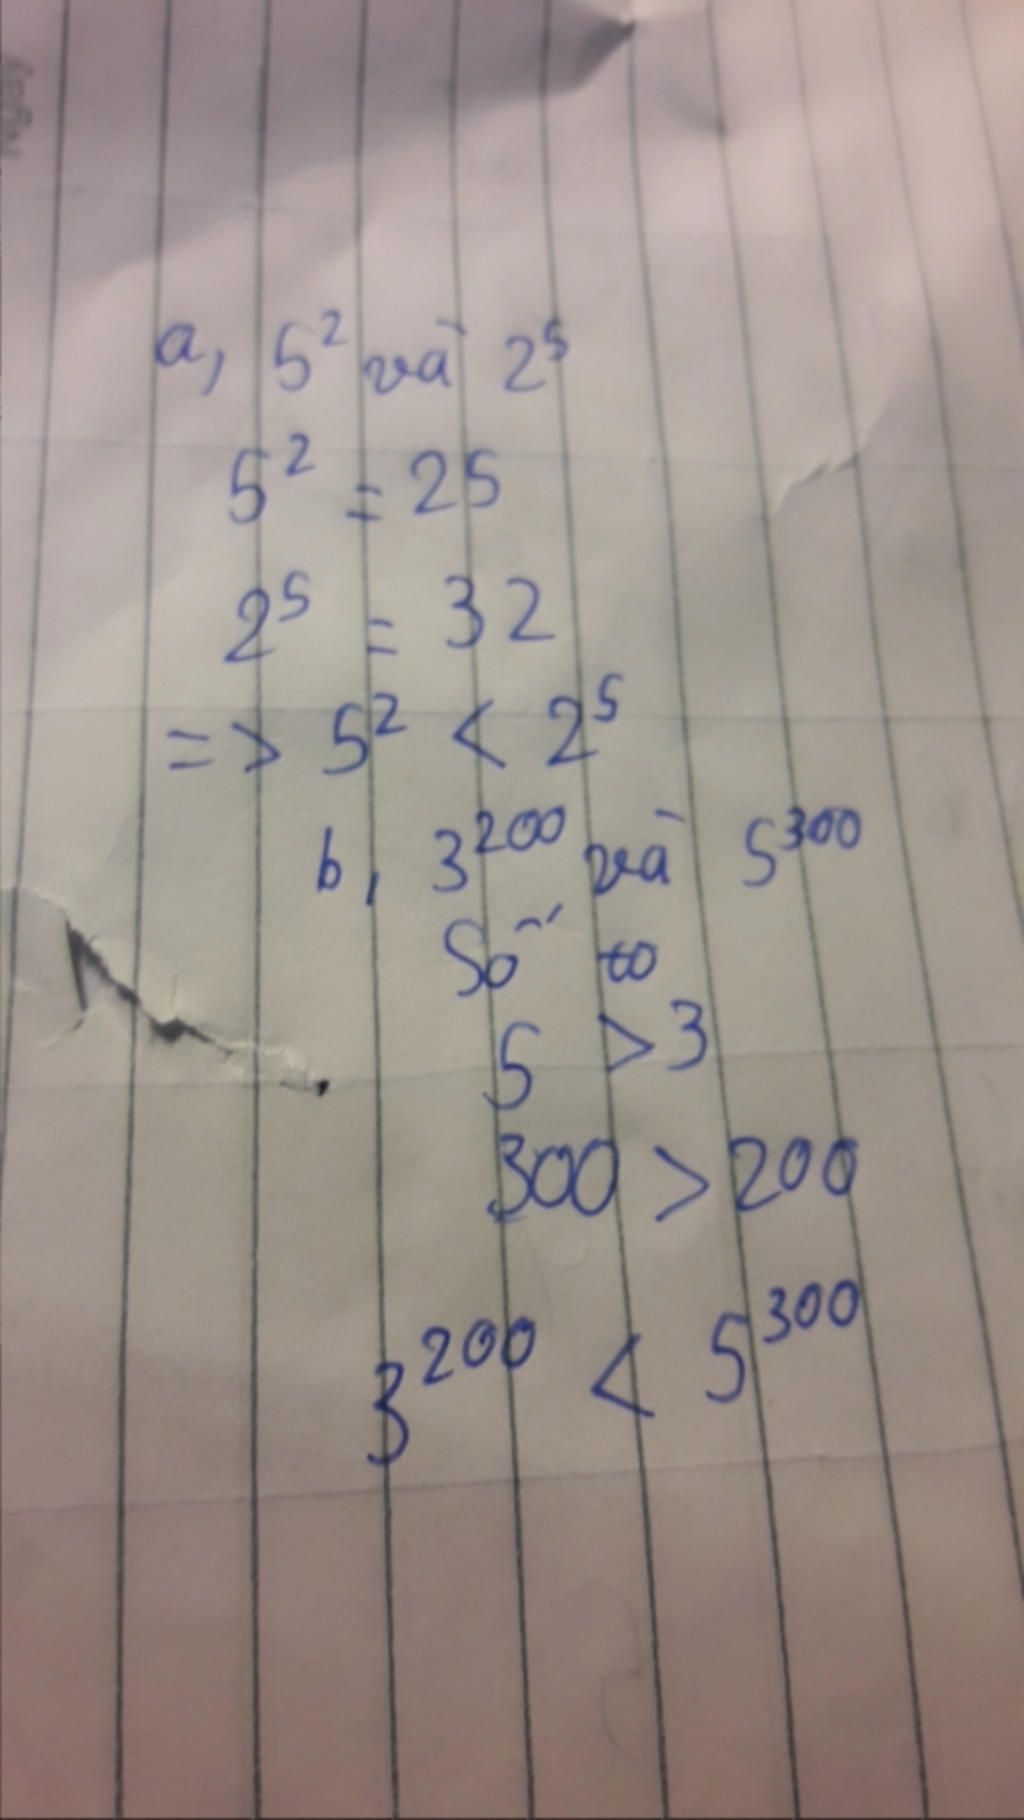 a, 5² và 2⁵
5² = 25
2⁵ = 32
=> 5² < 2⁵
b, 3²⁰⁰ và 5³⁰⁰
Số to
5 > 3
300 > 200
3²⁰⁰ < 5³⁰⁰